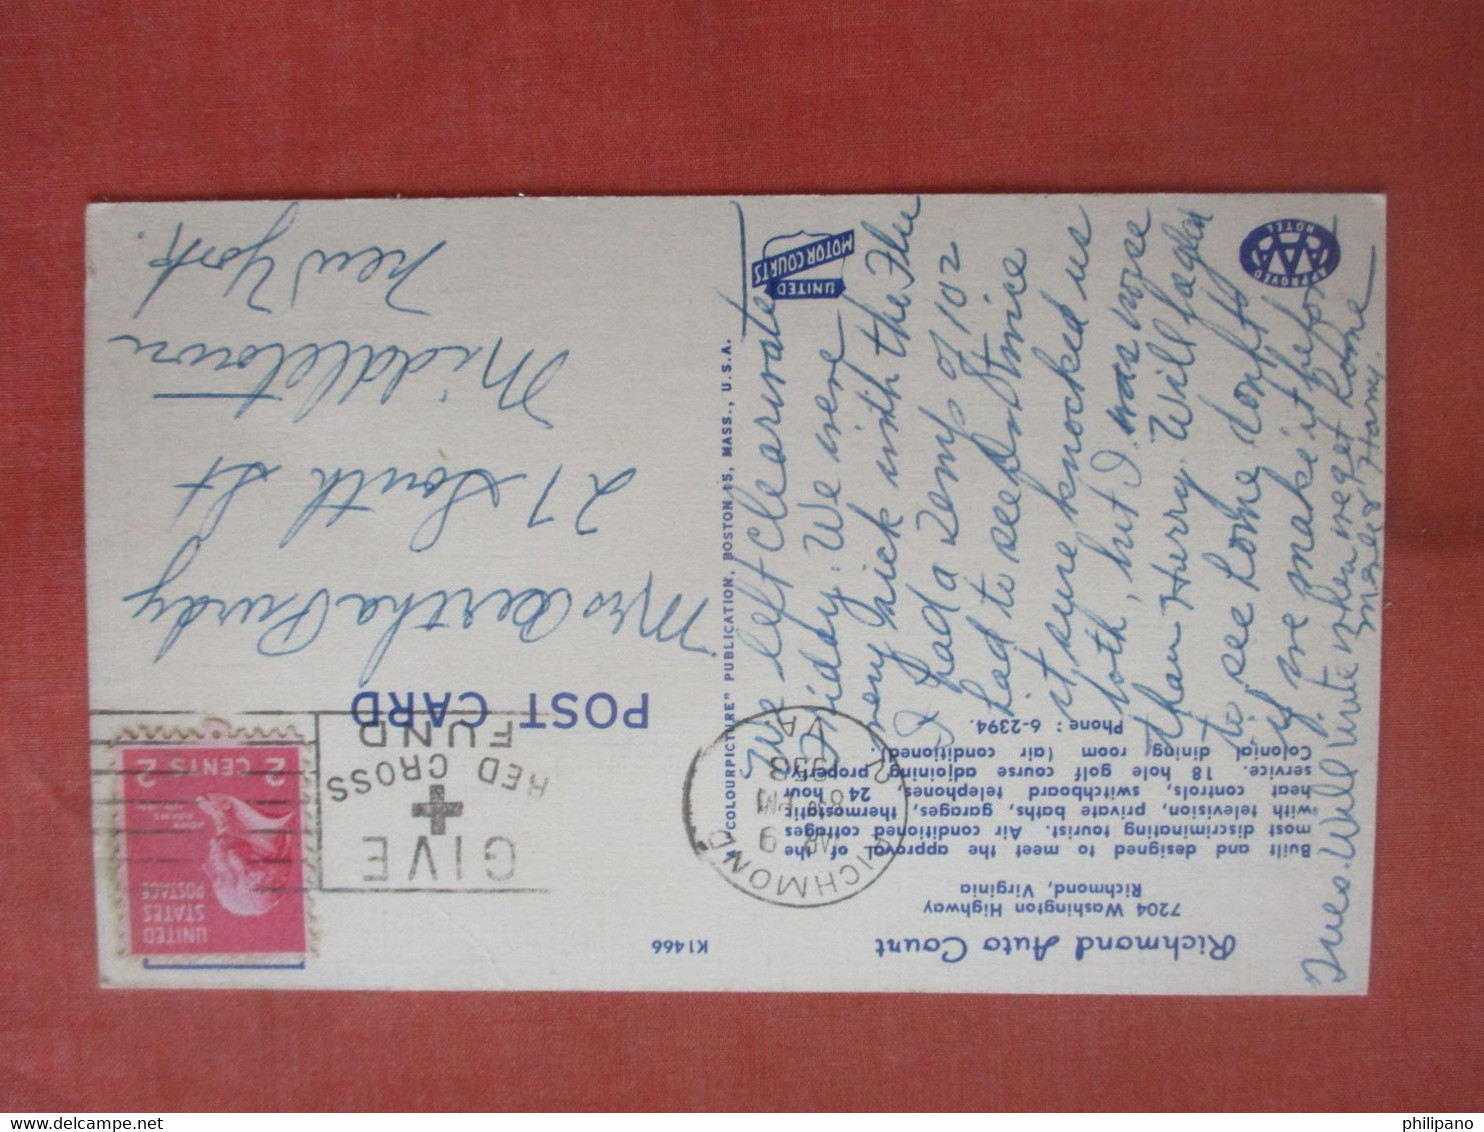 Richmond Auto Court
7204 Washington Highway
Richmond, Virginia
Built and designed to meet the approval of the
most discriminating tourist. Air conditioned cottages
with television, private baths, garages, thermostatic
heat controls, switchboard telephones, 24 hour
service. 18 hole golf course adjoining property.
Colonial dining room (air conditioned).
Phone: 6-2394.
APPROVED
AAA
HOTEL
UNITED
MOTOR COURTS
We left Clearwater
Friday. We were
very sick with the Flu
I had a temp of 102
had to see Dr twice
it sure knocked us
both, but I was worse
than Harry. Will be glad
to see home don't
if we make it before
Tues. Will write when we get home
Harry.
"COLOURPICTURE" PUBLICATION, BOSTON 15, MASS., U.S.A.
K1466
POST CARD
RICHMOND
VA
MAR 9
8 30 PM
GIVE
RED CROSS
FUND
UNITED
STATES
POSTAGE
JOHN
ADAMS
2 CENTS 2
Mrs Bertha Purdy
27 South St
Middletown
New York.
philipano